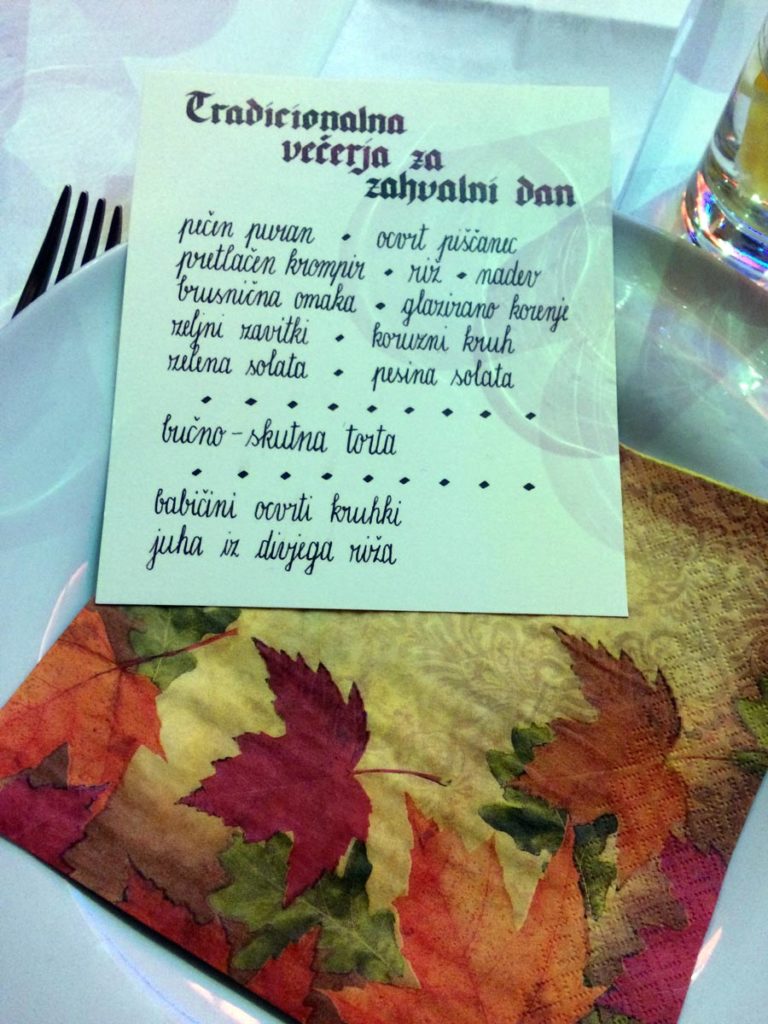 Tradicionalna
večerja za
zahvalni dan
pečen puran • ocvrt piščanec
pretlačen krompir • riž • nadev
brusnična omaka • glazirano korenje
zeljni zavitki • koruzni kruh
zelena solata • pesina solata
bučno-skutna torta
babičini ocvrti kruhki
juha iz divjega riža